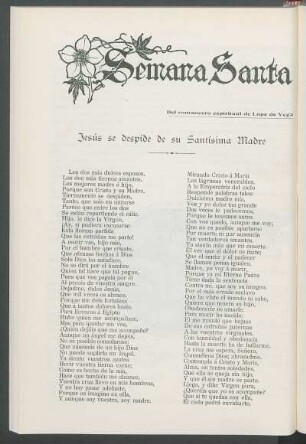 Semana Santa
Del romancero espiritual de Lope de Vega
Jesús se despide de su Santísima Madre
Los dos más dulces esposos,
Los dos más tiernos amantes,
Los mejores madre e hijo,
Porque son Cristo y su Madre,
Tiernamente se despiden,
Tanto, que sólo en mirarse,
Parece que entre los dos
Se están repartiendo el cáliz.
Hijo, le dice la Virgen,
¡Ay, si pudiera excusarse
Esta llorosa partida
Que las entrañas me parte!
A morir vas, hijo mío,
Por el hombre que criaste,
Que ofensas hechas a Dios
Sólo Dios las satisface.
No se dirá por el hombre
Quien tal hace que tal pague,
Pues que vos pagáis por él
Al precio de vuestra sangre.
Dejadme, dulce Jesús,
Que mil veces os abrace,
Porque me deis fortaleza
Que a tantos dolores baste.
Para llevaros a Egipto
Hubo quien me acompañase,
Mas para quedar sin vos,
¿Quién dejáis que me acompañe?
Aunque un ángel me dejéis,
No es posible consolarme,
Que ausencia de un hijo Dios
No puede suplirla un ángel.
Ya siento vuestros azotes
Herir vuestra tierna carne;
Como es hecha de la mía,
Hace que también me alcance.
Vuestra cruz llevo en mis hombros,
Y no hay pasar adelante,
Porque os imagino en ella,
Y aunque soy vuestra, soy madre.
Mirando Cristo a María
Las lágrimas venerables,
A la Emperatriz del cielo
Responde palabras tales:
Dulcísima madre mía,
Vos y yo dolor tan grande
Dos veces le padecemos,
Porque le tenemos antes.
Con vos quedo, aunque me voy;
Que no es posible apartarse
Por muerte ni por ausencia
Tan verdaderos amantes.
Ya siento más que mi muerte
El ver que el dolor os mate;
Que el sentir y el padecer
Se llaman penas iguales.
Madre, yo voy a morir,
Porque ya mi Eterno Padre
Tiene dada la sentencia
Contra mí, que soy su imagen.
Por el más errado esclavo
Que ha visto el mundo ni sabe,
Quiere que muera su hijo;
Obedecerle es amarle.
Para morir he nacido:
El me mandó que bajase
De sus entrañas paternas
A las vuestras virginales.
Con humildad y obediencia
Hasta la muerte ha de hallarme.
La cruz me espera, Señora,
Consuéleos Dios; abrazadme.
Contempla a Cristo y María,
Alma, en tantas soledades,
Que ella se queda sin hijo,
Y que él sin madre se parte.
Llega, y dile: Virgen pura,
¿Queréis que yo os acompañe?
Que si te quedas con ella
El cielo podrá envidiarte.